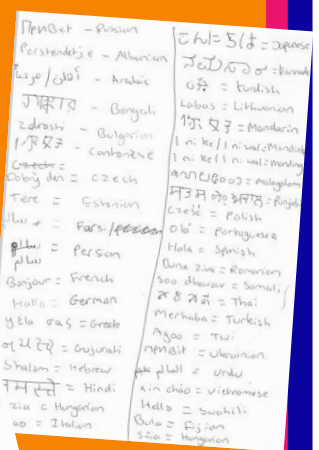 Привет - Russian
Pershendetje - Albanian
أهلا / مرحبا - Arabic
- Bengali
zdrasti - Bulgarian
你好 - Cantonese
Czech =
Dobrý den = Czech
Tere = Estonian
سلام = Farsi /
سلام = Persian
سلام
Bonjour = French
Hallo = German
γεια σας = Greek
= Gujurati
Shalom = Hebrew
नमस्ते = Hindi
zia = Hungarian
ao = Italian
こんにちは = Japanese
= Kannada
= Kurdish
Labas = Lithuanian
你好 = Mandarin
I ni ke / I ni wal = Mandinka
I ni ke / I ni wal = Manding
= Malayalam
= Punjabi
Cześć = Polish
Olá = Portuguese
Hola = Spanish
Buna ziua = Romanian
soo dhawow = Somali
= Thai
Merhaba = Turkish
Agoo = Twi
Привіт = Ukrainian
= Urdu
xin chào = Vietnamese
Hello = Swahili
Bula = Fijian
szia = Hungarian